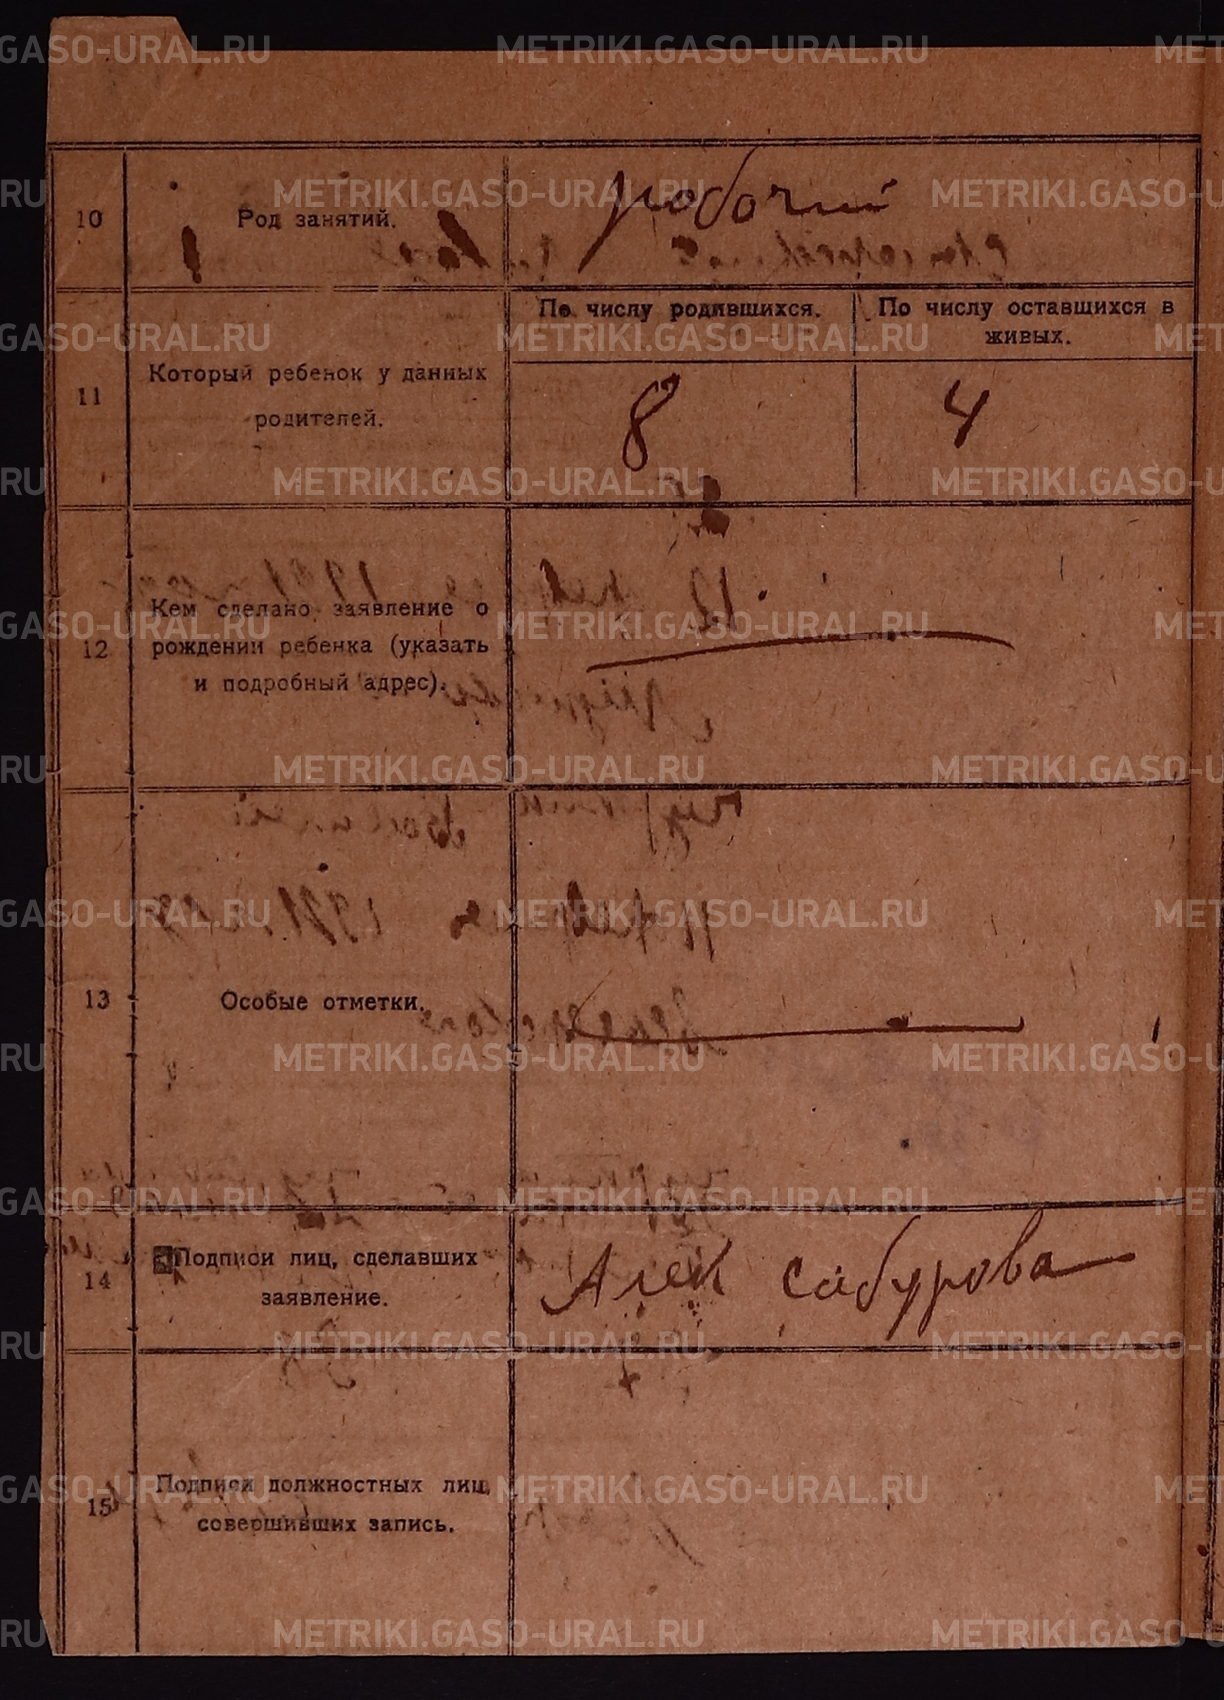 METRIKI.GASO-URAL.RU
10
Род занятий.
рабочий
11
Который ребенок у данных
родителей.
По числу родившихся.
По числу оставшихся в
живых.
8
4
12
Кем сделано заявление о
рождении ребенка (указать
и подробный адрес).
13
Особые отметки.
14
Подписи лиц, сделавших
заявление.
Сабурова
15
Подписи должностных лиц,
совершивших запись.